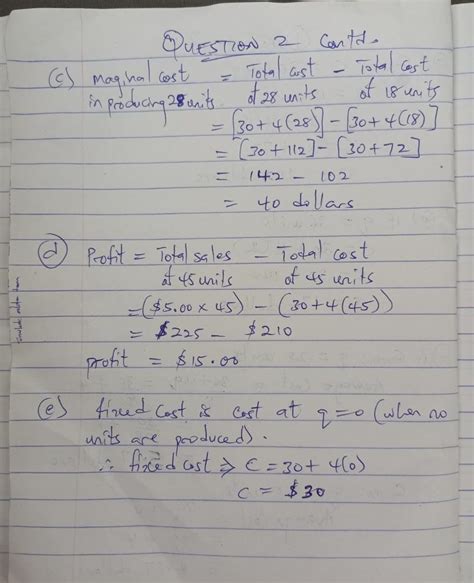 QUESTION 2 Contd.
(c) maginal cost = Total cost - Total cost
in producing 28 units of 28 units of 18 units
= [30+4(28)] - [30+4(18)]
= [30+112] - [30+72]
= 142 - 102
= 40 dollars
(d) Profit = Total sales - Total cost
at 45 units of 45 units
= ($5.00 x 45) - (30+4(45))
= $225 - $210
profit = $15.00
(e) fixed cost is cost at q=0 (when no
units are produced).
∴ fixed cost ⇒ C = 30+ 4(0)
C = $30